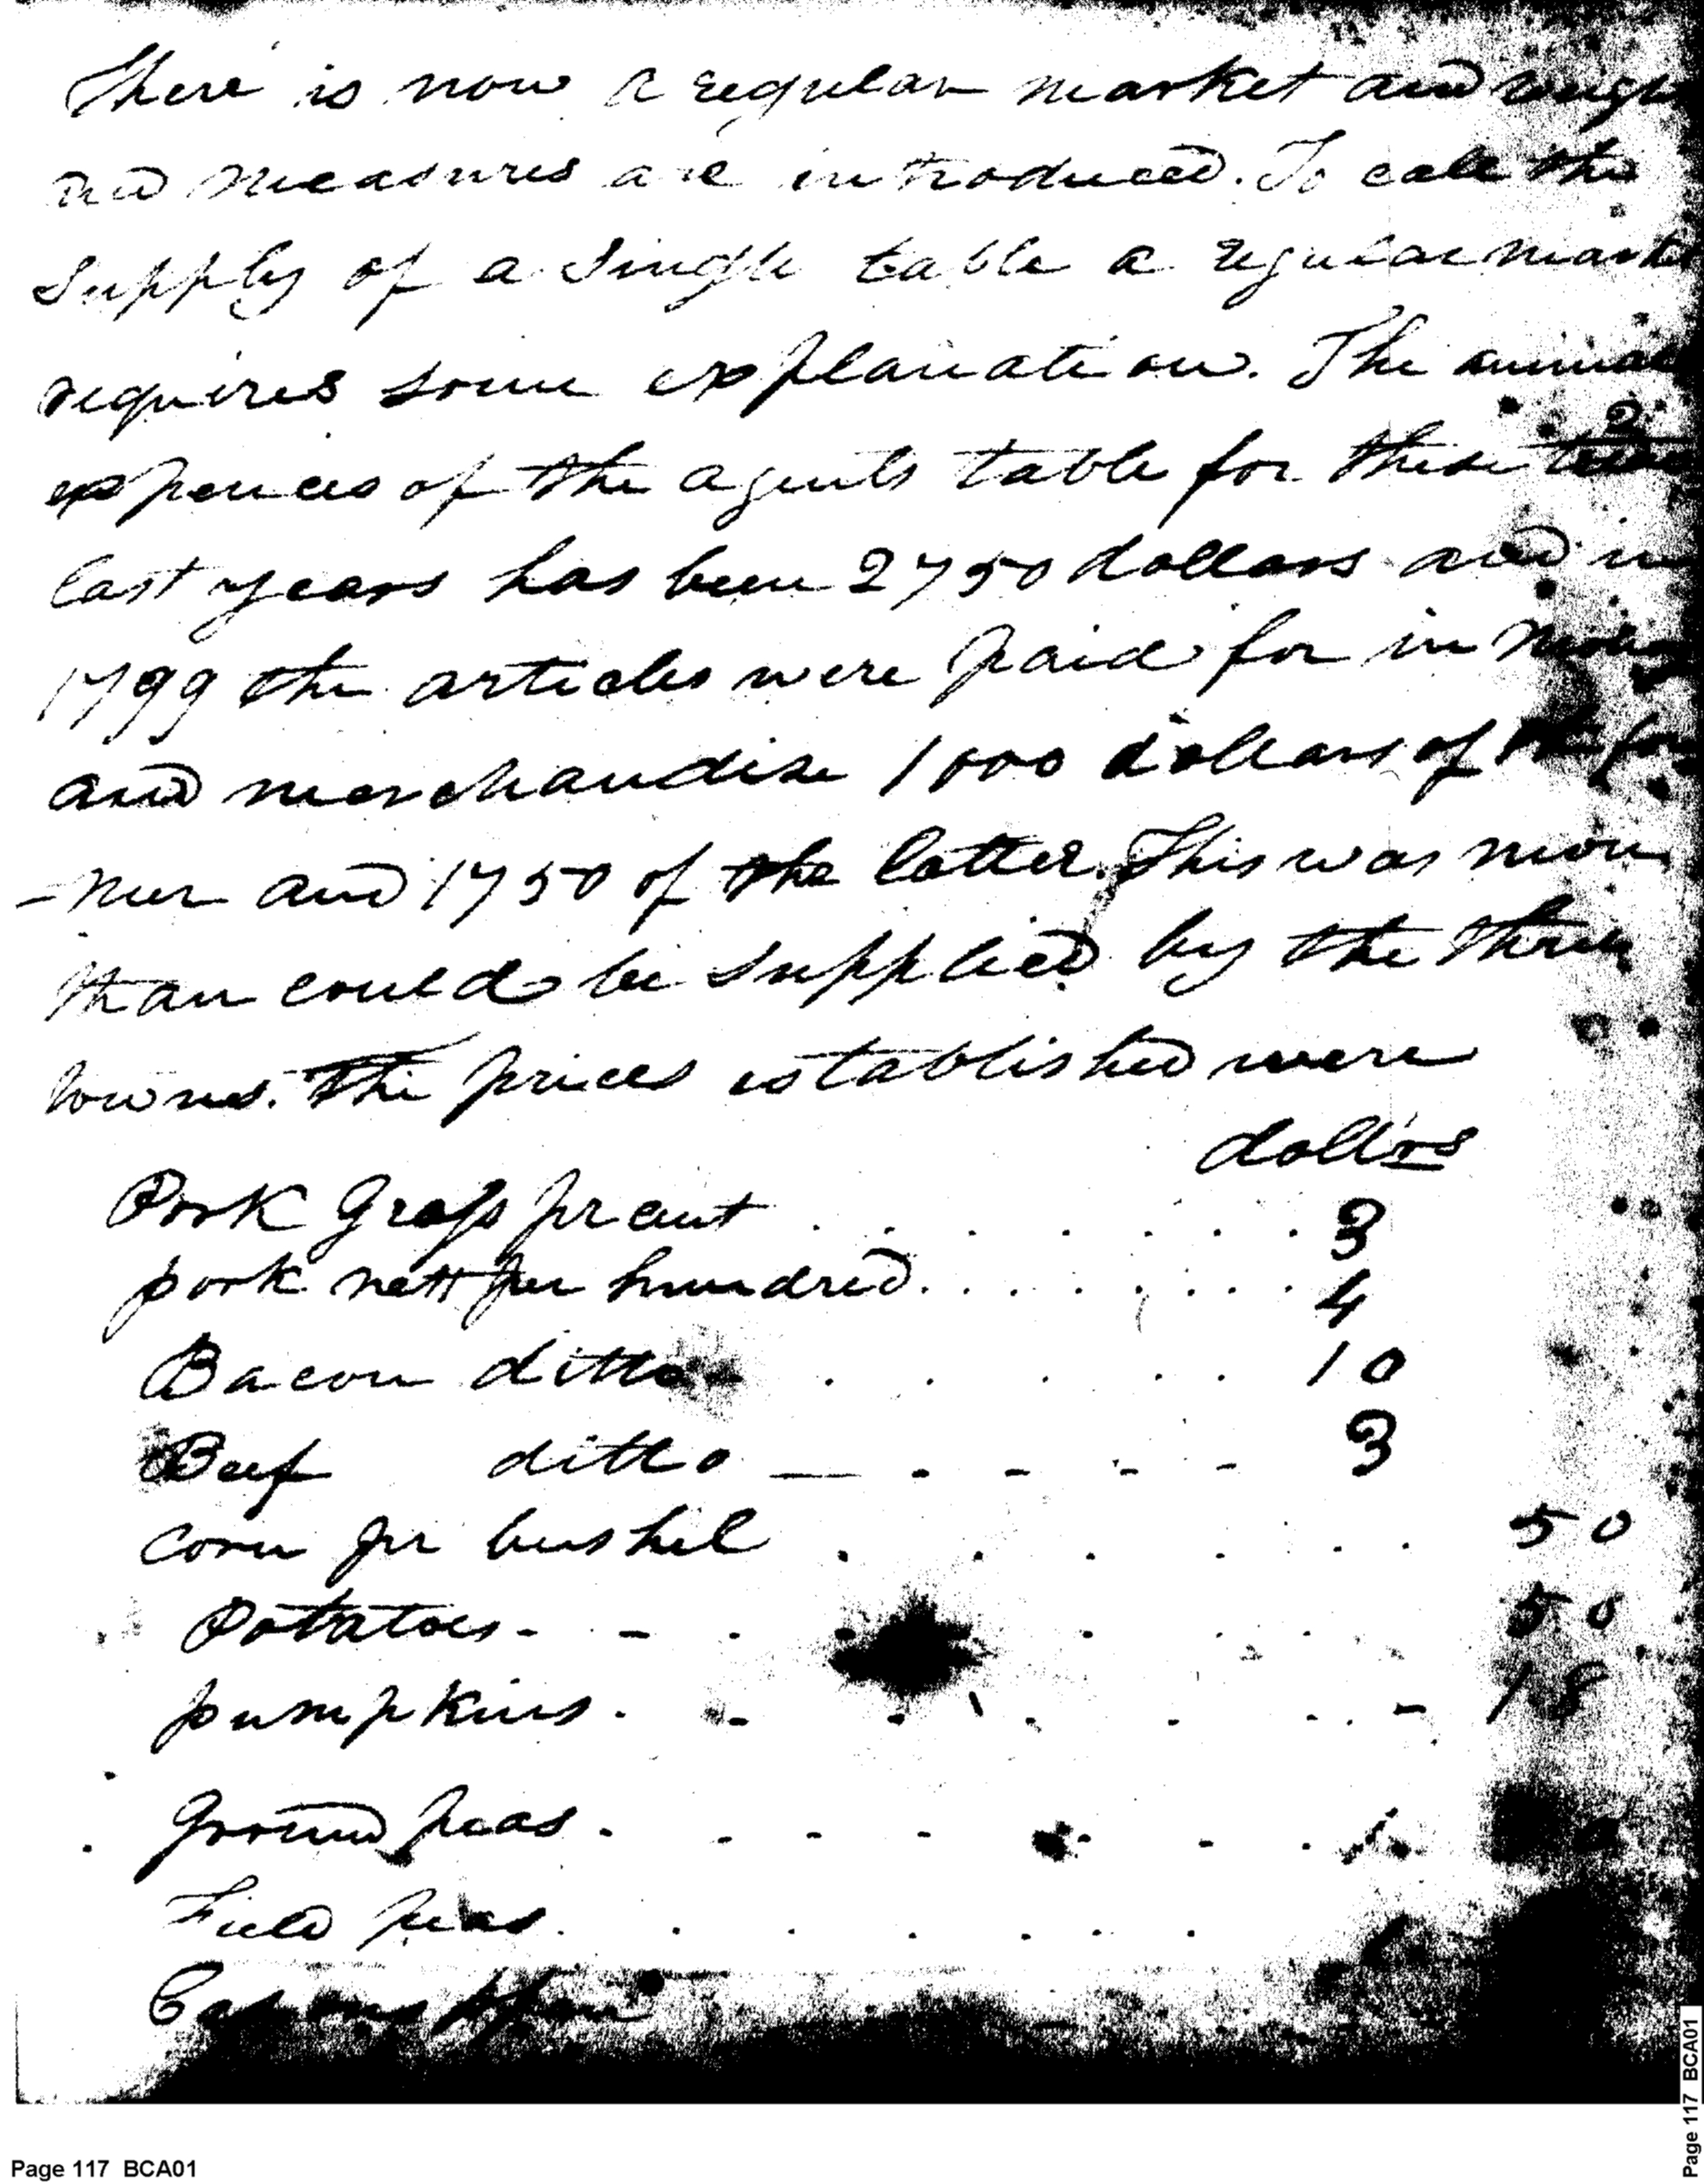 There is now a regular market and weigh
and measures are introduced. To call the
supply of a single table a regular market
requires some explanation. The annual
2
expences of the agents table for these
last years has been 2750 dollars and in
1799 the articles were paid for in money
and merchandise 1000 dollars of the for
-mer and 1750 of the latter. This was more
than could be supplied by the three
towns. The prices established were
dollrs
Pork Gross pr cwt . . . . . . . 3
pork nett per hundred . . . . . . . . 4
Bacon ditto . . . . . 10
Beef ditto — - - - - 3
Corn pr bushel . . . . . . 50
Potatoes - - . . . . . 50
pumpkins . - . . . . . - 18
Ground peas . - - - . - .
Field peas . . . . . . .
Page 117 BCA01
Page 117 BCA01